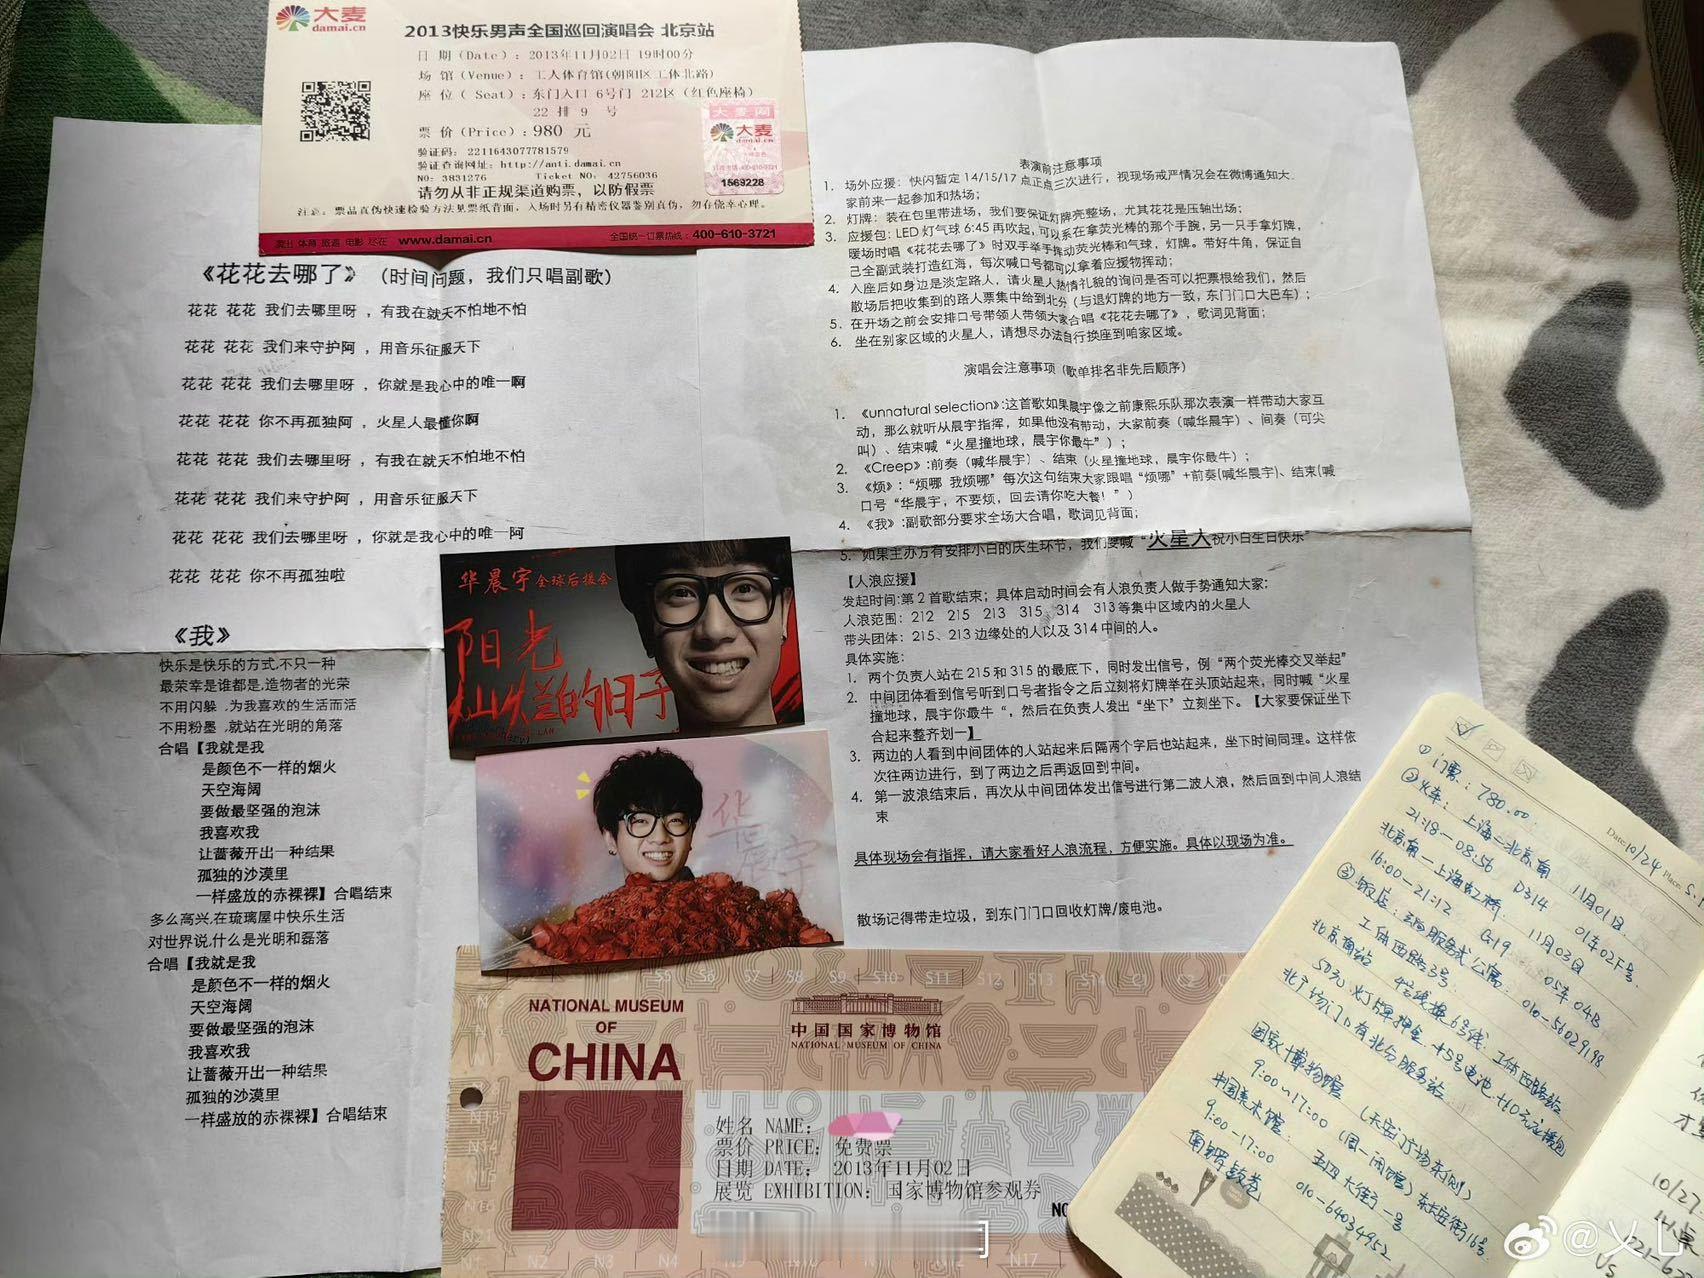 大麦
damai.cn
2013快乐男声全国巡回演唱会 北京站
日 期（Date）：2013年11月02日 19时00分
场 馆（Venue）：工人体育馆(朝阳区工体北路)
座 位（ Seat）：东门入口 6号门 212区（红色座椅）
22 排 9 号
票 价（Price）：980 元
验证码：2211643077781579
验证查询网址：http://anti.damai.cn
NO：3831276 Ticket NO：42756036
请勿从非正规渠道购票，以防假票
注意：票品真伪快速检验方法见票纸背面，入场时另有精密仪器鉴别真伪，勿存侥幸心理。
大麦网
大麦
damai.cn
1569228
演出 体育 旅游 电影 尽在 www.damai.cn 全国统一订票热线：400-610-3721
《花花去哪了》（时间问题，我们只唱副歌）
花花 花花 我们去哪里呀 ，有我在就天不怕地不怕
花花 花花 我们来守护阿 ，用音乐征服天下
花花 花花 我们去哪里呀 ，你就是我心中的唯一啊
花花 花花 你不再孤独阿 ，火星人最懂你啊
花花 花花 我们去哪里呀 ，有我在就天不怕地不怕
花花 花花 我们来守护阿 ，用音乐征服天下
花花 花花 我们去哪里呀 ，你就是我心中的唯一阿
花花 花花 你不再孤独啦
《我》
快乐是快乐的方式,不只一种
最荣幸是谁都是,造物者的光荣
不用闪躲 ,为我喜欢的生活而活
不用粉墨 ,就站在光明的角落
合唱【我就是我
是颜色不一样的烟火
天空海阔
要做最坚强的泡沫
我喜欢我
让蔷薇开出一种结果
孤独的沙漠里
一样盛放的赤裸裸】合唱结束
多么高兴,在琉璃屋中快乐生活
对世界说,什么是光明和磊落
合唱【我就是我
是颜色不一样的烟火
天空海阔
要做最坚强的泡沫
我喜欢我
让蔷薇开出一种结果
孤独的沙漠里
一样盛放的赤裸裸】合唱结束
表演前注意事项
1. 场外应援：快闪暂定 14/15/17 点正点三次进行，视现场戒严情况会在微博通知大
家前来一起参加和热场；
2. 灯牌：装在包里带进场，我们要保证灯牌亮整场，尤其花花是压轴出场；
3. 应援包：LED 灯气球 6:45 再吹起，可以系在拿荧光棒的那个手腕，另一只手拿灯牌，
暖场时唱《花花去哪了》时双手举手挥动荧光棒和气球，灯牌。带好牛角，保证自
己全副武装打造红海，每次喊口号都可以拿着应援物挥动；
4. 入座后如身边是淡定路人，请火星人热情礼貌的询问是否可以把票根给我们，然后
散场后把收集到的路人票集中给到北分（与退灯牌的地方一致，东门门口大巴车）；
5. 在开场之前会安排口号带领人带领大家合唱《花花去哪了》，歌词见背面；
6. 坐在别家区域的火星人，请想尽办法自行换座到咱家区域。
演唱会注意事项（歌单排名非先后顺序）
1. 《unnatural selection》:这首歌如果晨宇像之前康熙乐队那次表演一样带动大家互
动，那么就听从晨宇指挥，如果他没有带动，大家前奏（喊华晨宇）、间奏（可尖
叫）、结束喊“火星撞地球，晨宇你最牛”）；
2. 《Creep》:前奏（喊华晨宇）、结束（火星撞地球，晨宇你最牛）；
3. 《烦》：“烦哪 我烦哪”每次这句结束大家跟唱“烦哪”+前奏(喊华晨宇)、结束(喊
口号“华晨宇，不要烦，回去请你吃大餐！”)
4. 《我》:副歌部分要求全场大合唱，歌词见背面；
5. 如果主办方有安排小白的庆生环节，我们要喊“火星人祝小白生日快乐”
【人浪应援】
发起时间:第 2 首歌结束；具体启动时间会有人浪负责人做手势通知大家：
人浪范围：212 215 213 315、314 313 等集中区域内的火星人
带头团体：215、213 边缘处的人以及 314 中间的人。
具体实施：
1. 两个负责人站在 215 和 315 的最底下，同时发出信号，例“两个荧光棒交叉举起”
2. 中间团体看到信号听到口号者指令之后立刻将灯牌举在头顶站起来，同时喊“火星
撞地球，晨宇你最牛“，然后在负责人发出“坐下”立刻坐下。【大家要保证坐下
合起来整齐划一】
3. 两边的人看到中间团体的人站起来后隔两个字后也站起来，坐下时间同理。这样依
次往两边进行，到了两边之后再返回到中间。
4. 第一波浪结束后，再次从中间团体发出信号进行第二波人浪，然后回到中间人浪结
束
具体现场会有指挥，请大家看好人浪流程，方便实施。具体以现场为准。
散场记得带走垃圾，到东门门口回收灯牌/废电池。
华晨宇全球后援会
阳光
灿烂的日子
华晨宇
NATIONAL MUSEUM
OF
CHINA
中国国家博物馆
NATIONAL MUSEUM OF CHINA
姓名 NAME：
票价 PRICE：免费票
日期 DATE： 2013年11月02日
展览 EXHIBITION：国家博物馆参观券
NO
Date 10/24 Place
①门票：780.00
②火车：上海—北京南 11月01日
21:18—08:56 D314 01车02F号
北京南—上海虹桥 11月03日
16:00—21:12 G19 05车04B
③饭店： 服务式公寓 010-56029198
工体西路3号
北京南站 4号线换6号线 工体西路站
50元灯牌押金 +5号电池 +10元应援包
北广场门口有北分服务站
国家博物馆 (天安门广场东侧)
9:00~17:00 (周一闭馆) 东长安街16号
中国美术馆： 五四大街一号
9:00-17:00 010-64034952
南锣鼓巷
10/27